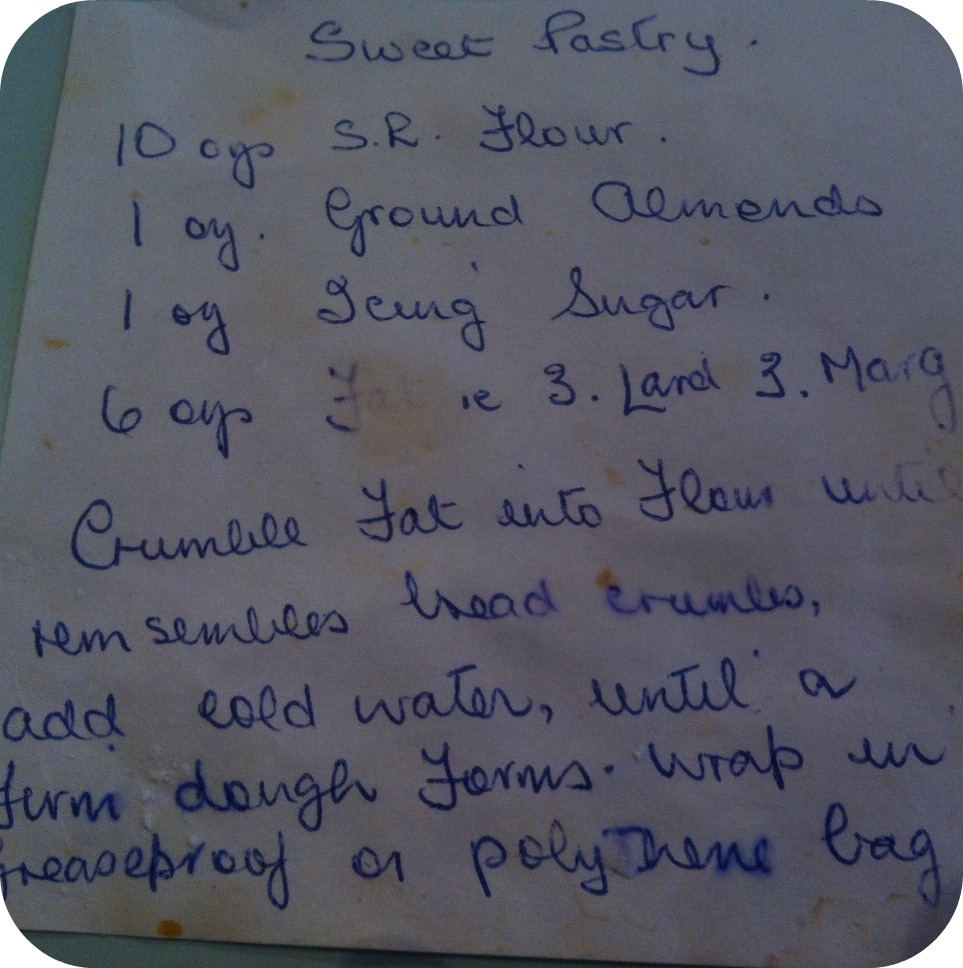 Sweet Pastry.
10 ozs S.R. Flour.
1 oz. Ground Almonds
1 oz Icing Sugar.
6 ozs Fat ie 3. Lard 3. Marg
Crumble Fat into Flour until
remsembles bread crumbs,
add cold water, until a
firm dough Forms. wrap in
greaseproof or polythene bag